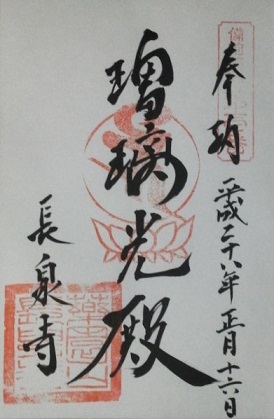 奉納
平成二八年 正月十六日
瑠璃光殿
長泉寺